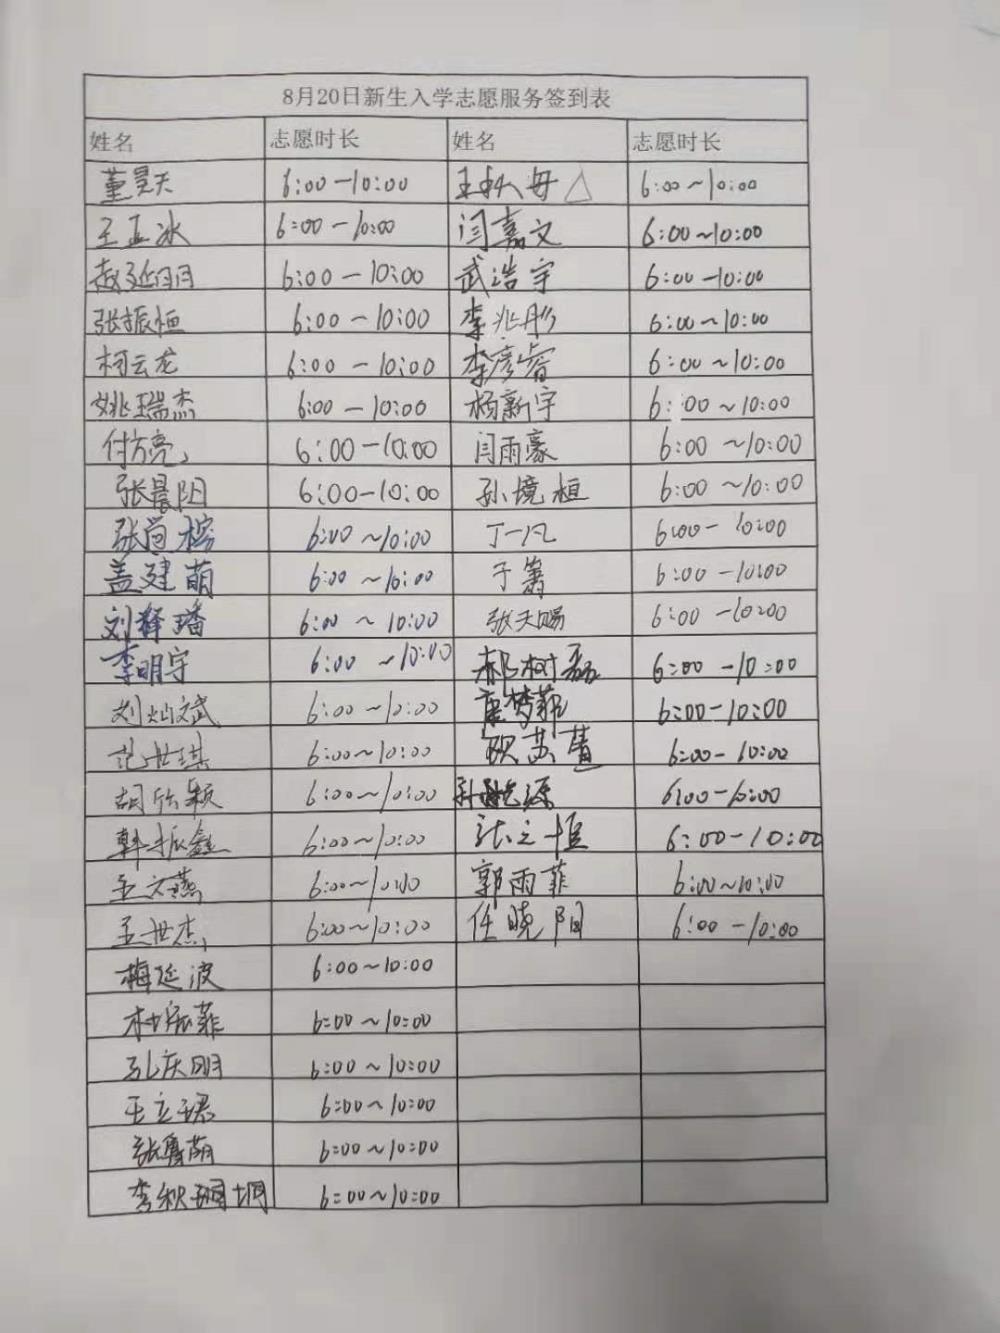 8月20日新生入学志愿服务签到表
姓名 志愿时长 姓名 志愿时长
董昊天 6:00-10:00 王秋毋△ 6:00~10:00
王孟冰 6:00-10:00 闫嘉文 6:00~10:00
赵延明 6:00-10:00 武浩宇 6:00-10:00
张振恒 6:00-10:00 李兆彤 6:00~10:00
柯云龙 6:00-10:00 李彦睿 6:00~10:00
姚瑞杰 6:00-10:00 杨新宇 6:00~10:00
付方亮 6:00-10:00 闫雨豪 6:00~10:00
张晨阳 6:00-10:00 孙境桓 6:00~10:00
张尚榕 6:00~10:00 丁一凡 6:00-10:00
盖建萌 6:00~10:00 于箫 6:00-10:00
刘释璠 6:00~10:00 张天赐 6:00-10:00
李明宇 6:00~10:00 郝树磊 6:00-10:00
刘灿斌 6:00~10:00 康梦菲 6:00-10:00
范世琪 6:00~10:00 欧苏菁 6:00-10:00
胡欣颖 6:00~10:00 源 6:00-10:00
韩振鑫 6:00~10:00 张之恒 6:00-10:00
王文燕 6:00~10:00 郭雨菲 6:00~10:00
王世杰 6:00~10:00 任晓阳 6:00-10:00
梅延波 6:00~10:00
林宸菲 6:00~10:00
孔庆明 6:00~10:00
王立珺 6:00~10:00
张鲁萌 6:00~10:00
李秋珊 6:00~10:00